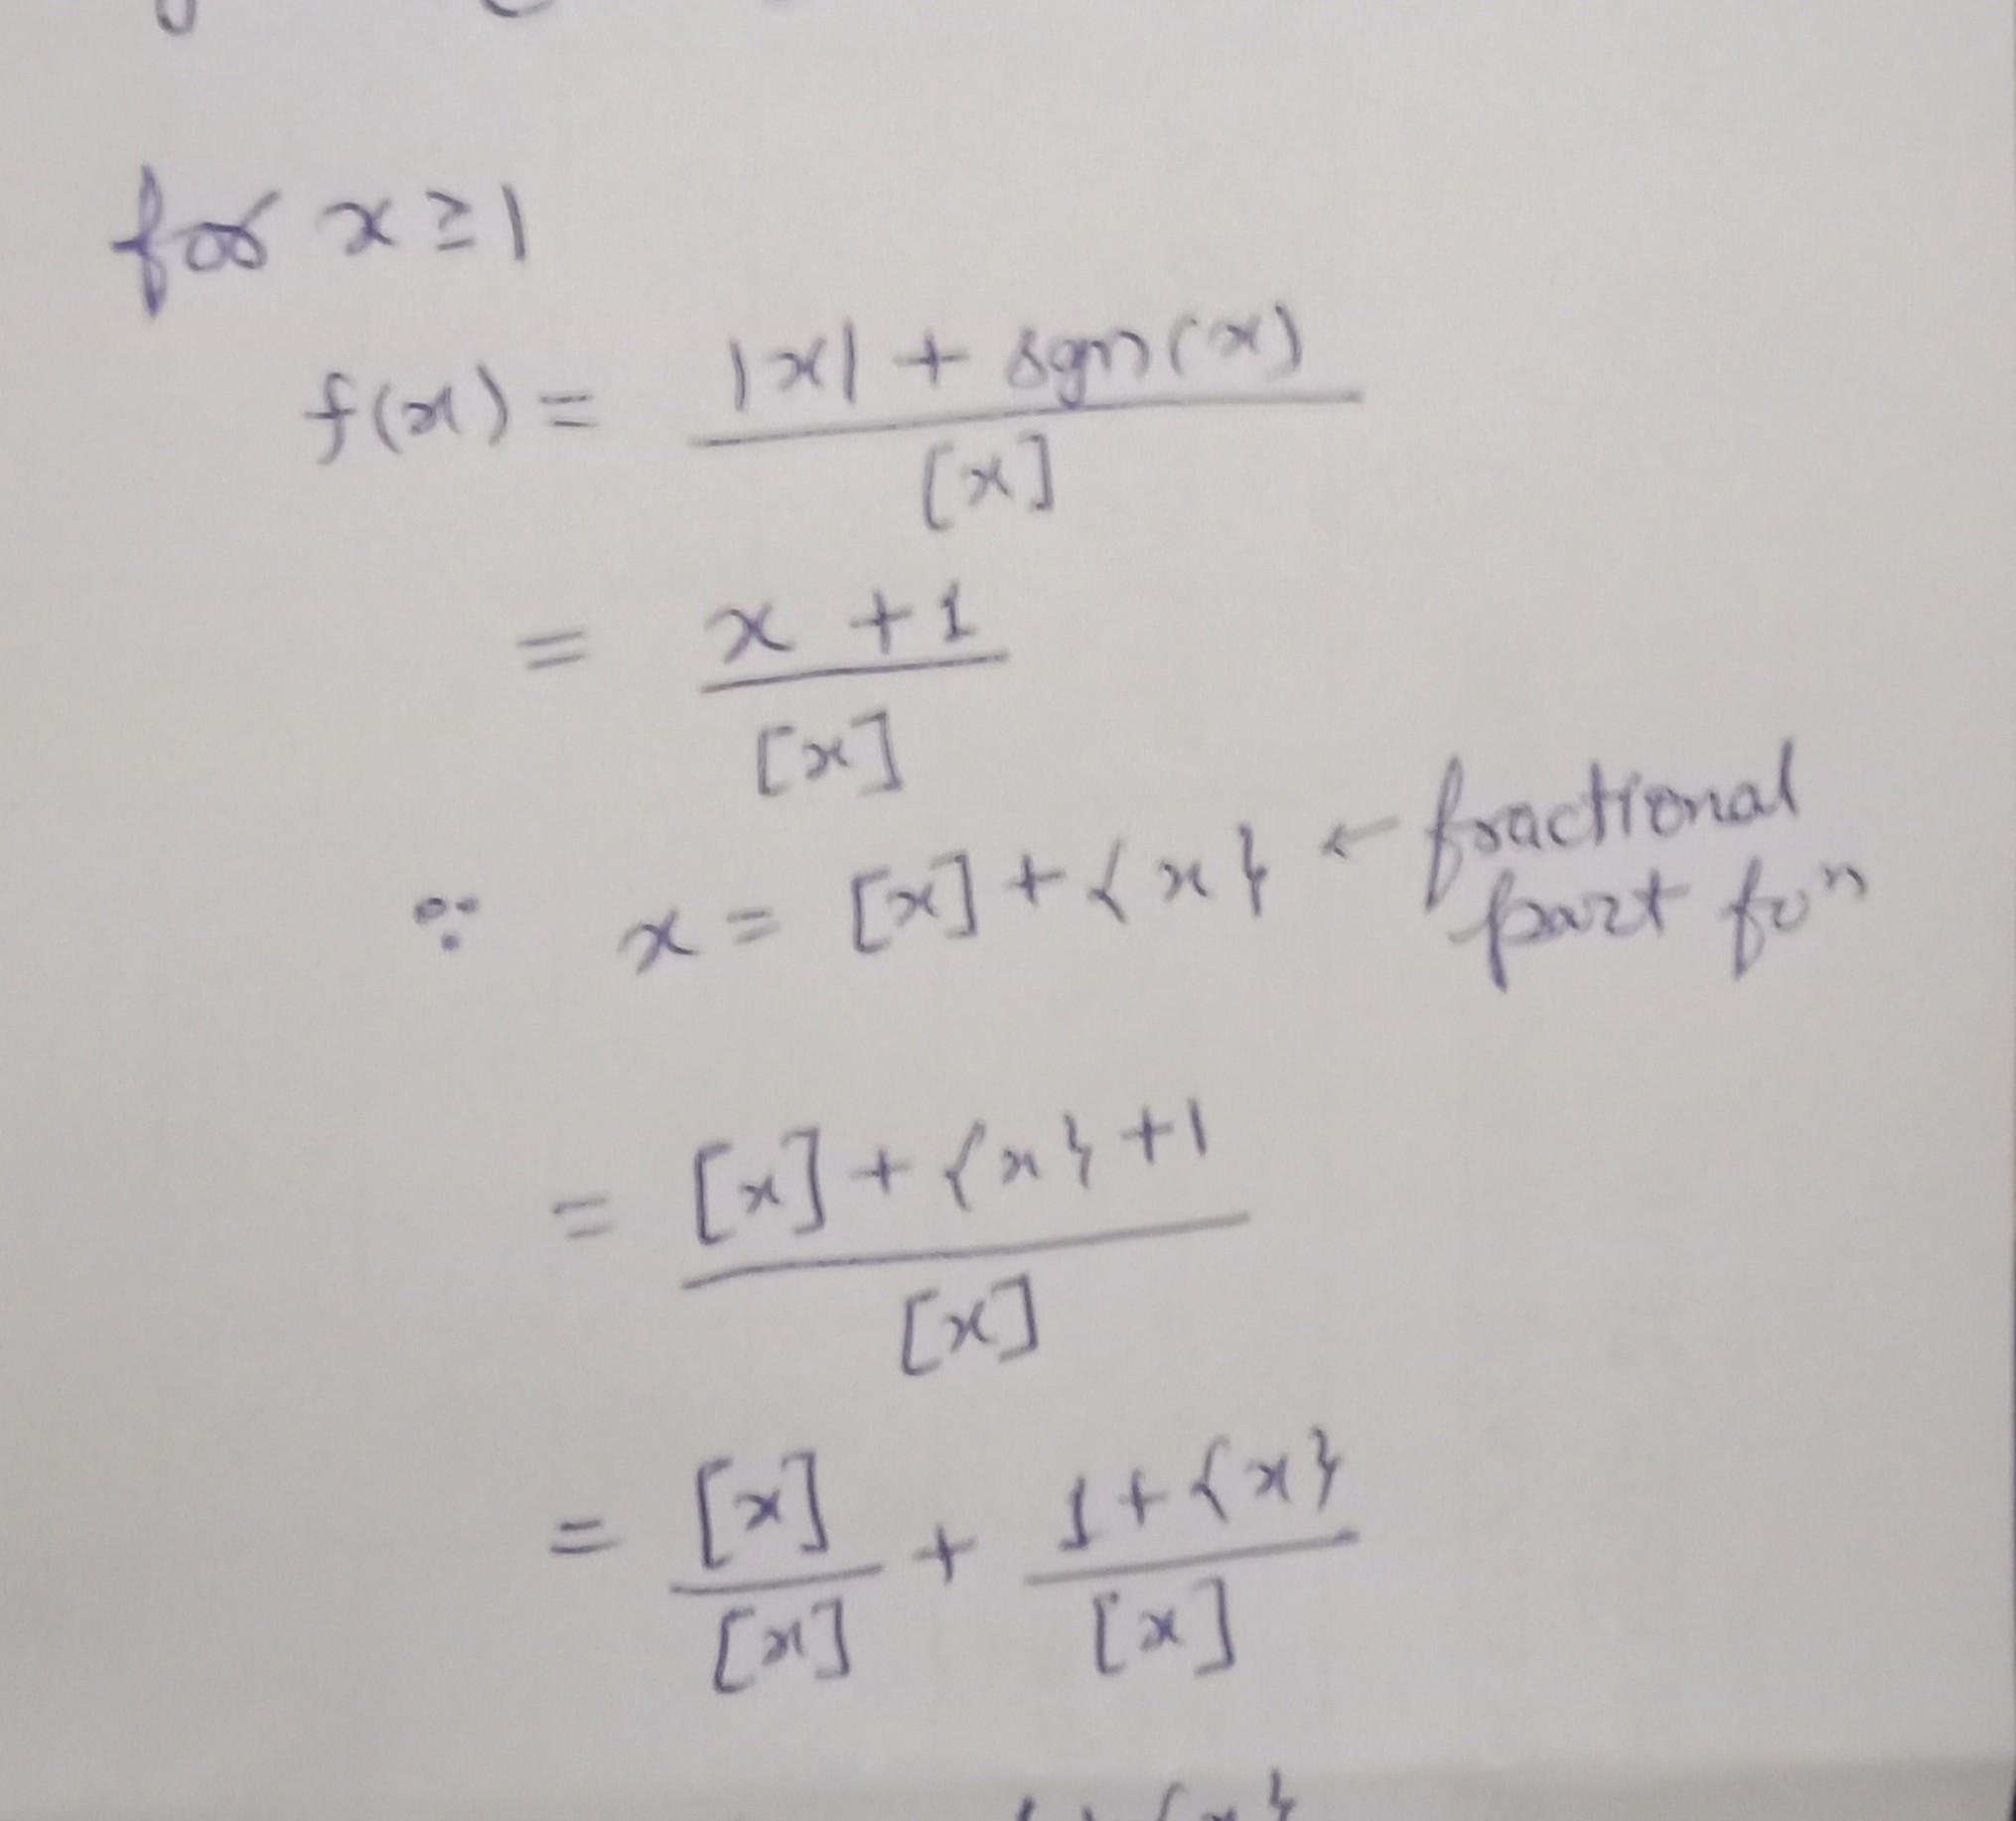 for x ≥ 1
f(x) = |x| + sgn(x) / [x]
= x + 1 / [x]
∵ x = [x] + {x} ← fractional part fuⁿ
= [x] + {x} + 1 / [x]
= [x] / [x] + 1 + {x} / [x]